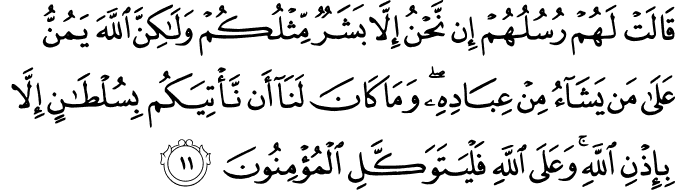 قَالَتْ لَهُمْ رُسُلُهُمْ إِن نَّحْنُ إِلَّا بَشَرٌ مِّثْلُكُمْ وَلَٰكِنَّ ٱللَّهَ يَمُنُّ
عَلَىٰ مَن يَشَآءُ مِنْ عِبَادِهِۦ ۖ وَمَا كَانَ لَنَآ أَن نَّأْتِيَكُم بِسُلْطَٰنٍ إِلَّا
بِإِذْنِ ٱللَّهِ ۚ وَعَلَى ٱللَّهِ فَلْيَتَوَكَّلِ ٱلْمُؤْمِنُونَ ١١